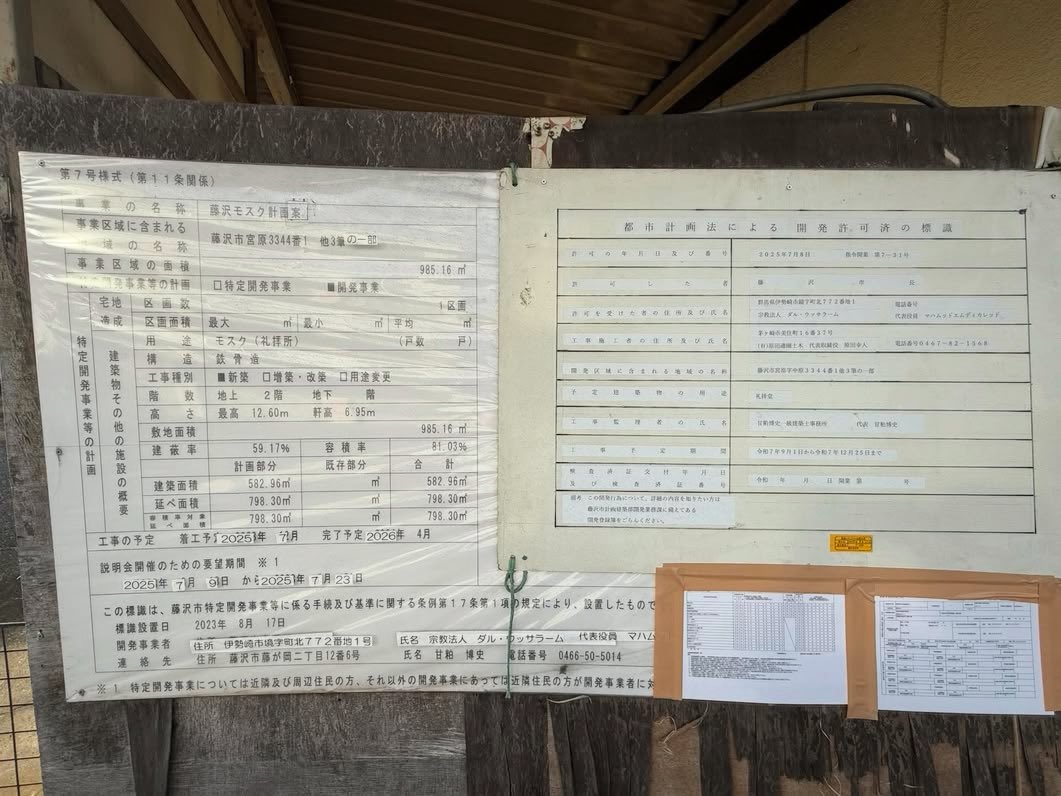 第7号様式（第11条関係）
事業の名称 藤沢モスク計画案
事業区域に含まれる
域の名称 藤沢市宮原3344番1 他3筆の一部
事業区域の面積 985.16 ㎡
特定開発事業等の計画 □特定開発事業 ■開発事業
特定開発事業等の計画
宅地造成 区画数 1区画
区画面積 最大 ㎡ 最小 ㎡ 平均 ㎡
建築物その他の施設の概要
用途 モスク（礼拝所） （戸数 戸）
構造 鉄骨造
工事種別 ■新築 □増築・改築 □用途変更
階数 地上 2階 地下 階
高さ 最高 12.60m 軒高 6.95m
敷地面積 985.16 ㎡
建蔽率 59.17% 容積率 81.03%
計画部分 既存部分 合計
建築面積 582.96㎡ ㎡ 582.96㎡
延べ面積 798.30㎡ ㎡ 798.30㎡
容積率対象延べ面積 798.30㎡ ㎡ 798.30㎡
工事の予定 着工予定 2025年 月 完了予定 2026年 4月
説明会開催のための要望期間 ※1
2025年 7月 9日 から 2025年 7月 23日
この標識は、藤沢市特定開発事業等に係る手続及び基準に関する条例第17条第1項の規定により、設置したもので
標識設置日 2023年 8月 17日
開発事業者 住所 伊勢崎市境字町北772番地1号 氏名 宗教法人 ダル・ウッサラーム 代表役員 マハム
連絡先 住所 藤沢市藤が岡二丁目12番6号 氏名 甘粕 博史 電話番号 0466-50-5014
※1 特定開発事業については近隣及び周辺住民の方、それ以外の開発事業にあっては近隣住民の方が開発事業者に対
都市計画法による 開発許可済の標識
許可の年月日及び番号 2025年7月8日 指令開業 第7-31号
許可した者 藤沢市長
許可を受けた者の住所及び氏名 群馬県伊勢崎市境字町北772番地1 電話番号
宗教法人 ダル・ウッサラーム 代表役員 マハムッドエムディカレッド
工事施工者の住所及び氏名 茅ヶ崎市美住町16番37号
(有)原田造園土木 代表取締役 原田幸人 電話番号0467-82-1368
開発区域に含まれる地域の名称 藤沢市宮原字中原3344番1他3筆の一部
予定建築物の用途 礼拝堂
工事監理者の氏名 甘粕博史一級建築士事務所 代表 甘粕博史
工事予定期間 令和7年9月1日から令和7年12月25日まで
検査済証交付年月日
及び検査済証番号 令和 年 月 日 開業 第 号
備考 この開発行為について、詳細の内容を知りたい方は
藤沢市計画建築部開発業務課に備えてある
開発登録簿をごらんください。